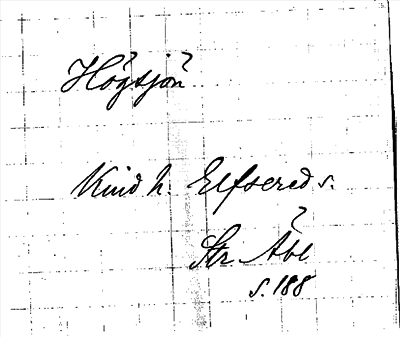 Högsjön
Kind h. Elfsered s.
Str Åbl
s. 188